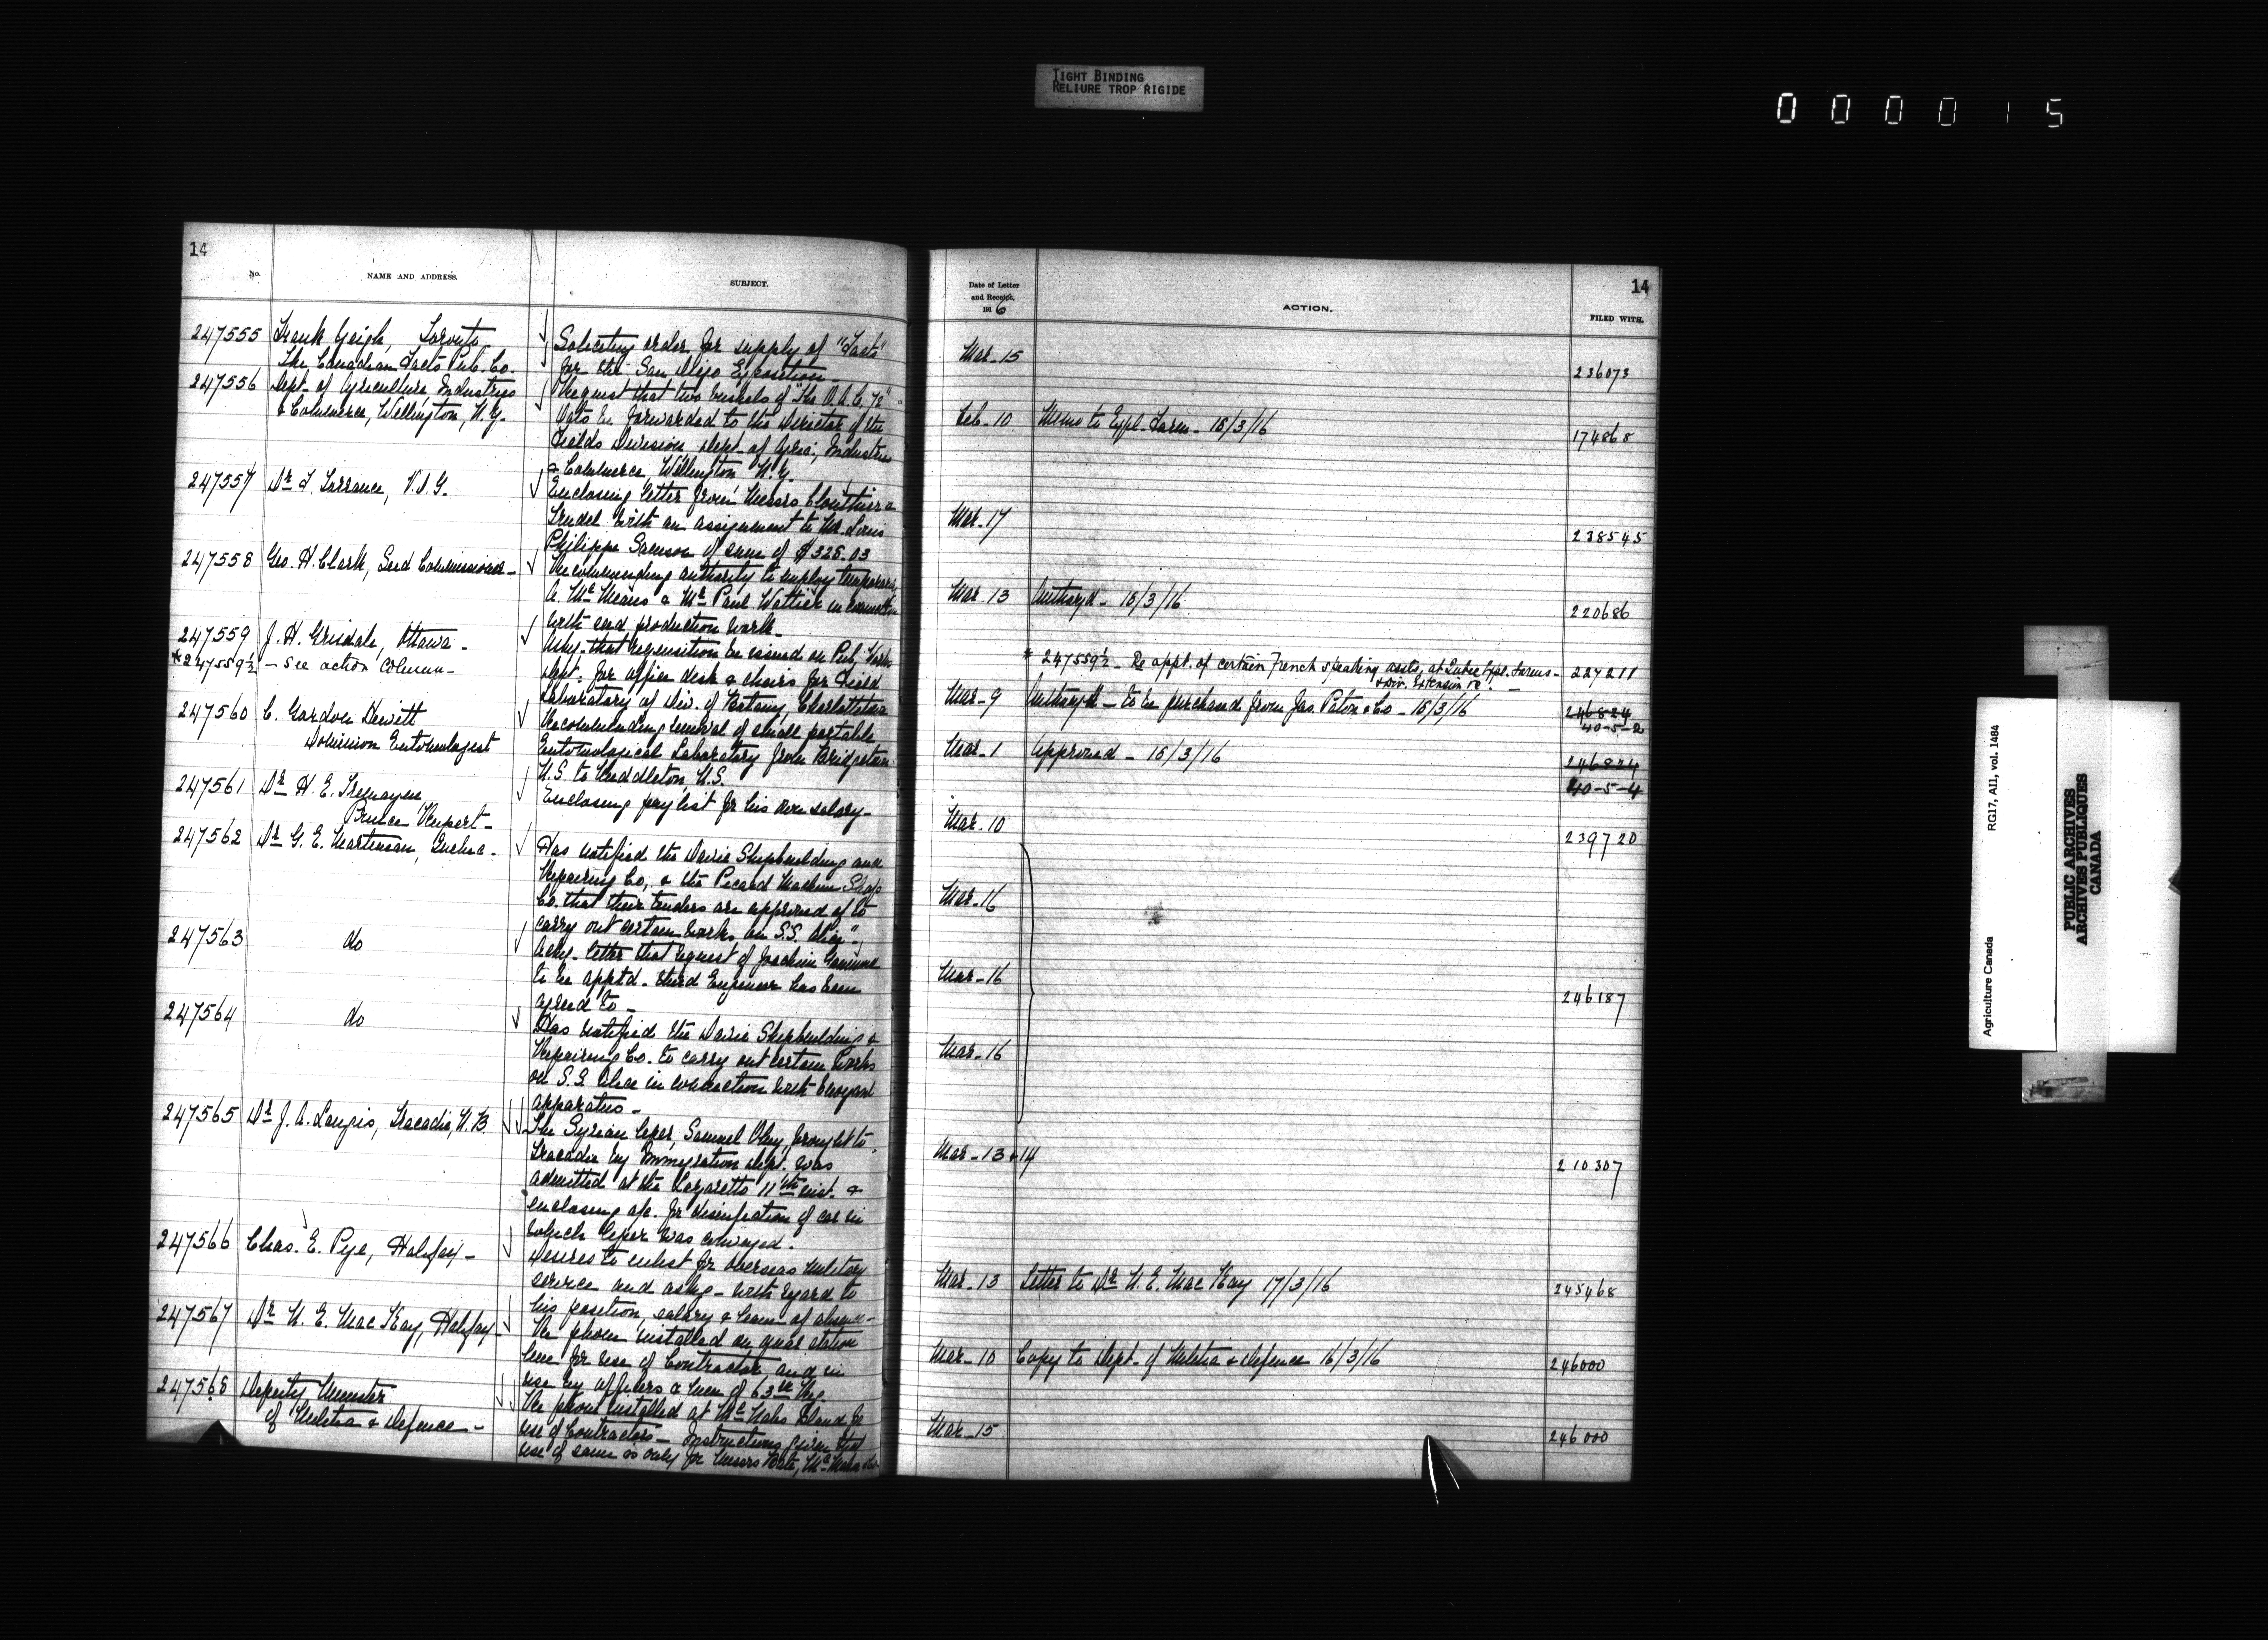 TIGHT BINDING
RELIURE TROP RIGIDE
000015
14
No.
NAME AND ADDRESS.
SUBJECT.
247555 Frank Yeigh, Toronto
The Canadian Facts Pub. Co.
Soliciting order for supply of "Facts"
for the San Diego Exposition
247556 Dept. of Agriculture, Industries
& Commerce, Wellington, N.Z.
Request that two bushels of "The O.A.C. 72"
Oats be forwarded to the Director of the
Fields Division, Dept. of Agric., Industries
& Commerce, Wellington N.Z.
247557 Dr F. Torrance, V.D.G.
Enclosing letter from Messrs Clouthier &
Trudel with an assignment to Mr. Louis
Philippe Samson of sum of $325.03
247558 Geo. H. Clark, Seed Commissioner
Recommending authority to employ temporarily
A. McMeans & Mr Paul Wattier in connection
with seed production work
247559 J. H. Grisdale, Ottawa
*247559½ - See action Column
Askg. that requisition be issued on Pub. Works
Dept. for office desk & chairs for Field
Laboratory of Div. of Botany, Charlottetown
247560 C. Gordon Hewitt
Dominion Entomologist
Recommending removal of small portable
Entomological Laboratory from Bridgetown
N.S. to Middleton, N.S.
247561 Dr H. E. Tremayne,
Prince Rupert
Enclosing pay list for his own salary
247562 Dr G. E. Martineau, Quebec
Has notified the Davie Shipbuilding and
Repairing Co, & the Picard Machine Shop
Co. that their tenders are approved of to
carry out certain works on S.S. Alice".
247563 do
Ackg. letter that request of Joachim
to be apptd. third Engineer has been
agreed to
247564 do
Has notified the Davie Shipbuilding &
Repairing Co. to carry out certain works
on S.S. Alice in connection with
apparatus
247565 Dr J. A. Langis, Tracadie, N.B.
The Syrian leper, Samuel Oley, brought to
Tracadie by Immigration Dept. was
admitted at the Lazaretto 11th inst. &
enclosing a/c. for disinfection of car in
which leper was conveyed.
247566 Chas. E. Pye, Halifax
Desires to enlist for overseas military
service and askg. with regard to
his position, salary & leave of absence
247567 Dr N. E. MacKay, Halifax
Re phone installed on quar. station
line for use of Contractor and in
use by officers & men of 63rd Reg.
247568 Deputy Minister
of Militia & Defence
Re phone installed at McNabs Island for
use of Contractors - Instructions given that
use of same is only for Messrs Bate, McMahon
14
Date of Letter
and Receipt,
1916
ACTION.
FILED WITH.
Mar. 15
236073
Feb. 10 Memo to Expl. Farm - 15/3/16
174868
Mar. 17
238545
Mar. 13 Authory'd - 15/3/16
220686
* 247559½ - Re appt. of certain French speaking assts. at Quebec Expl. Farms
& Div. Extension &c.
227211
Mar. 9 Authory'd - to be purchased from Jas. Paton & Co - 15/3/16
246824
40-5-2
Mar. 1 Approved - 15/3/16
246824
40-5-4
Mar. 10
239720
Mar. 16
Mar. 16
246187
Mar. 16
Mar. 13 & 14
210307
Mar. 13 Letter to Dr N. E. MacKay 17/3/16
245468
Mar. 10 Copy to Dept. of Militia & Defence 16/3/16
246000
Mar. 15
246000
Agriculture Canada RG17, AII, vol. 1484
PUBLIC ARCHIVES
ARCHIVES PUBLIQUES
CANADA